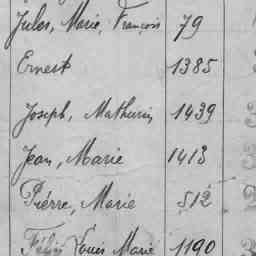 Jules, Marie, François 79
Ernest 1385
Joseph, Mathurin 1439
Jean, Marie 1413
Pierre, Marie 512
Félix Louis Marie 1190